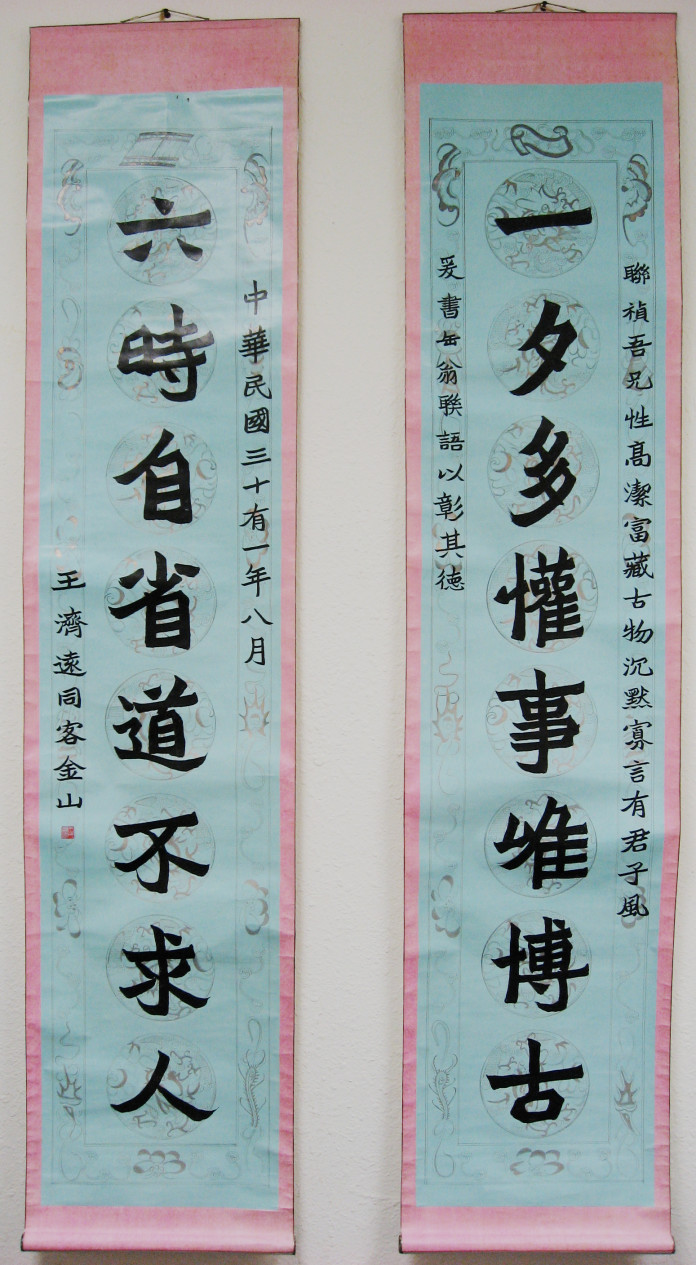 聯禎吾兄性髙潔富藏古物沉默寡言有君子風
一夕多懽事唯博古
爰書缶翁聯語以彰其徳
中華民國三十有一年八月
六時自省道不求人
王濟遠同客金山